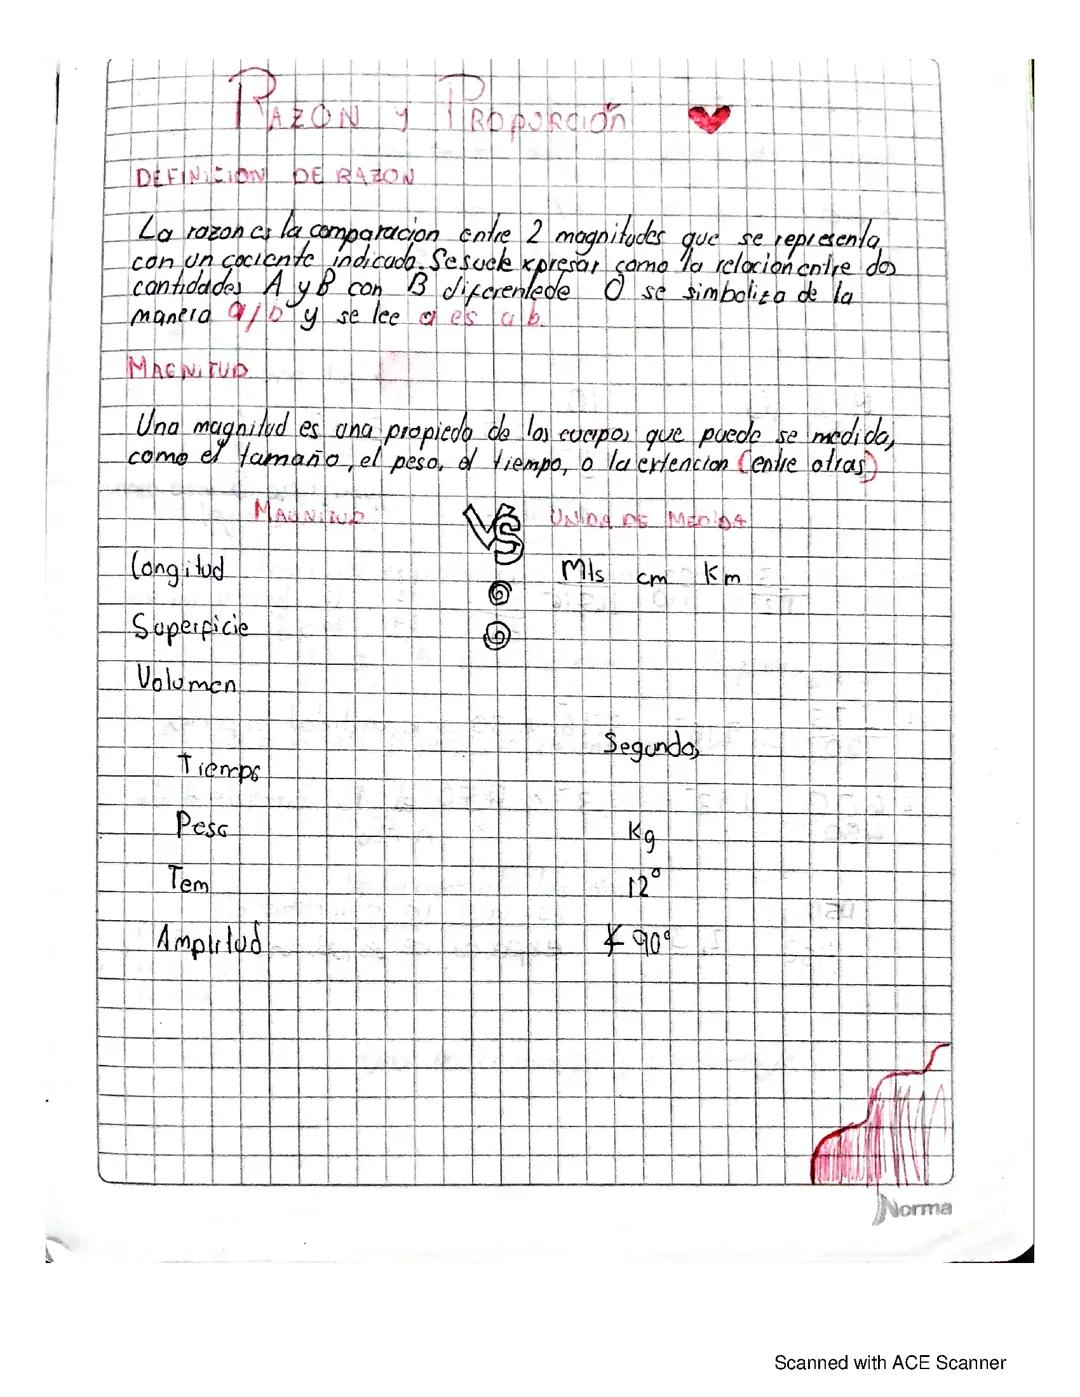 RAZON y PROPORCIÓN
DEFINICION DE RAZON
La razon es la comparacion entre 2 magnitudes que se representa
con un cociente indicado. Se suele xpresar como la relacion entre dos
cantidades A y B con B diferentede O se simboliza de la
manera a/b y se lee a es a b.
MAGNITUD
Una magnitud es una propieda de los cuerpos que puede se medida,
como el tamaño, el peso, el tiempo, o la extencion (entre otras)
MAGNITUD VS UNIDA DE MEDIDA
Longitud Mts cm Km
Superficie
Volumen
Segundos
Tiempo
Peso Kg
Tem 12°
Amplitud ∡ 90°
Norma
Scanned with ACE Scanner